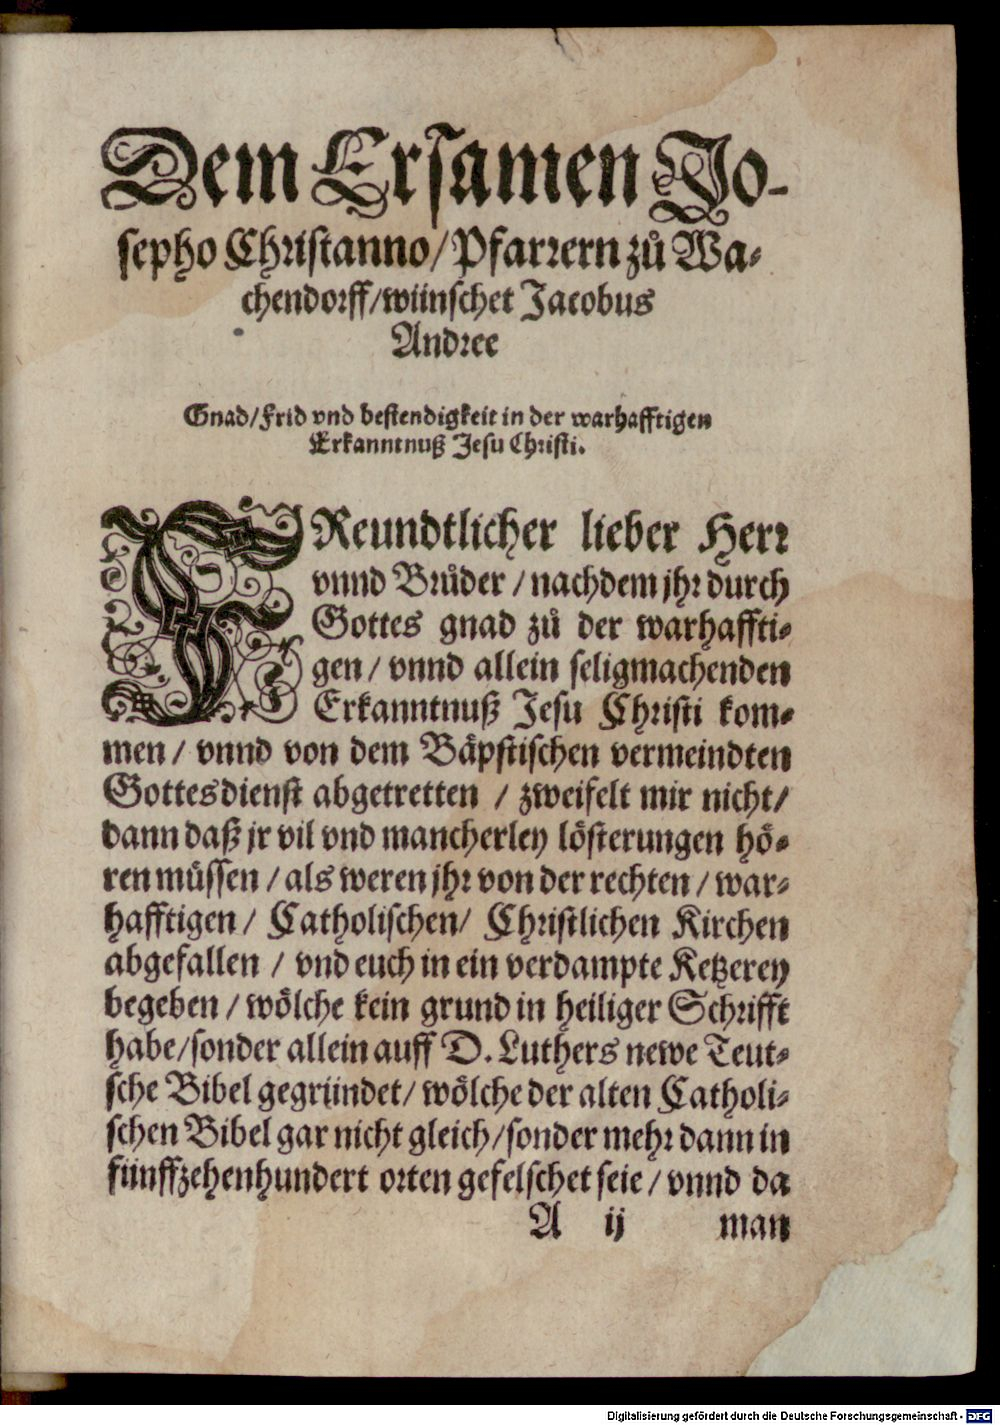 Dem Ersamen Jo-
sepho Christanno/Pfarrern zů Wa-
chendorff/wünschet Jacobus
Andree
Gnad/Frid vnd bestendigkeit in der warhafftigen
Erkanntnuß Jesu Christi.
FReundtlicher lieber Herr
vnnd Brůder / nachdem jhr durch
Gottes gnad zů der warhaffti-
gen / vnnd allein seligmachenden
Erkanntnuß Jesu Christi kom-
men / vnnd von dem Bäpstischen vermeindten
Gottesdienst abgetretten / zweifelt mir nicht/
dann daß jr vil vnd mancherley lösterungen hö-
ren müssen / als weren jhr von der rechten / war-
hafftigen / Catholischen/ Christlichen Kirchen
abgefallen / vnd euch in ein verdampte Ketzerey
begeben / wölche kein grund in heiliger Schrifft
habe/sonder allein auff D. Luthers newe Teut-
sche Bibel gegründet/ wölche der alten Catholi-
schen Bibel gar nicht gleich/sonder mehr dann in
fünffzehenhundert orten gefelschet seie / vnnd da
A ij man
Digitalisierung gefördert durch die Deutsche Forschungsgemeinschaft - DFG